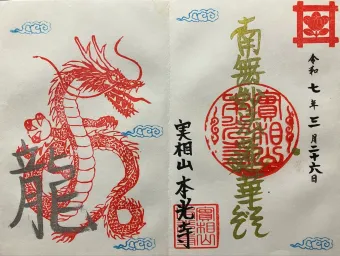 令和七年三月二十六日
南無妙法蓮華経
實相山
本光寺
実相山本光寺
實相山
龍